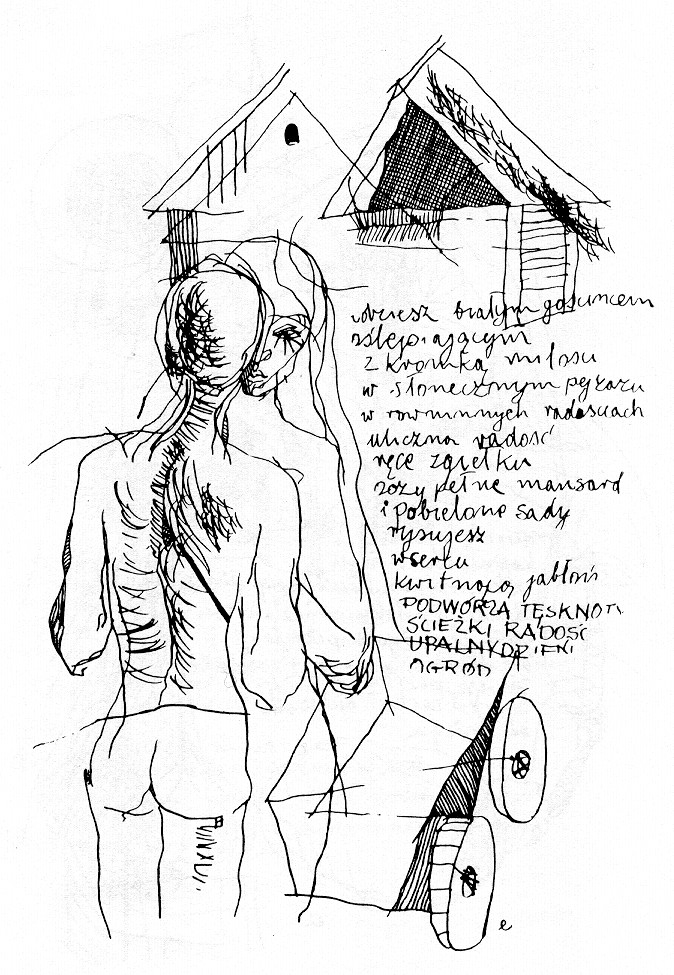 białym gościńcem
oślepiającym
z kromką miłości
w słonecznym pejzażu
w rowinnych radościach
uliczna radość
ręce zgiełku
pełne mansard
i pobielone sady
rysujesz
w sercu
kwitnącą jabłoń
PODWÓRZA TĘSKNOTY
ŚCIEŻKI RADOŚĆ
UPALNY DZIEŃ
OGRÓD
e